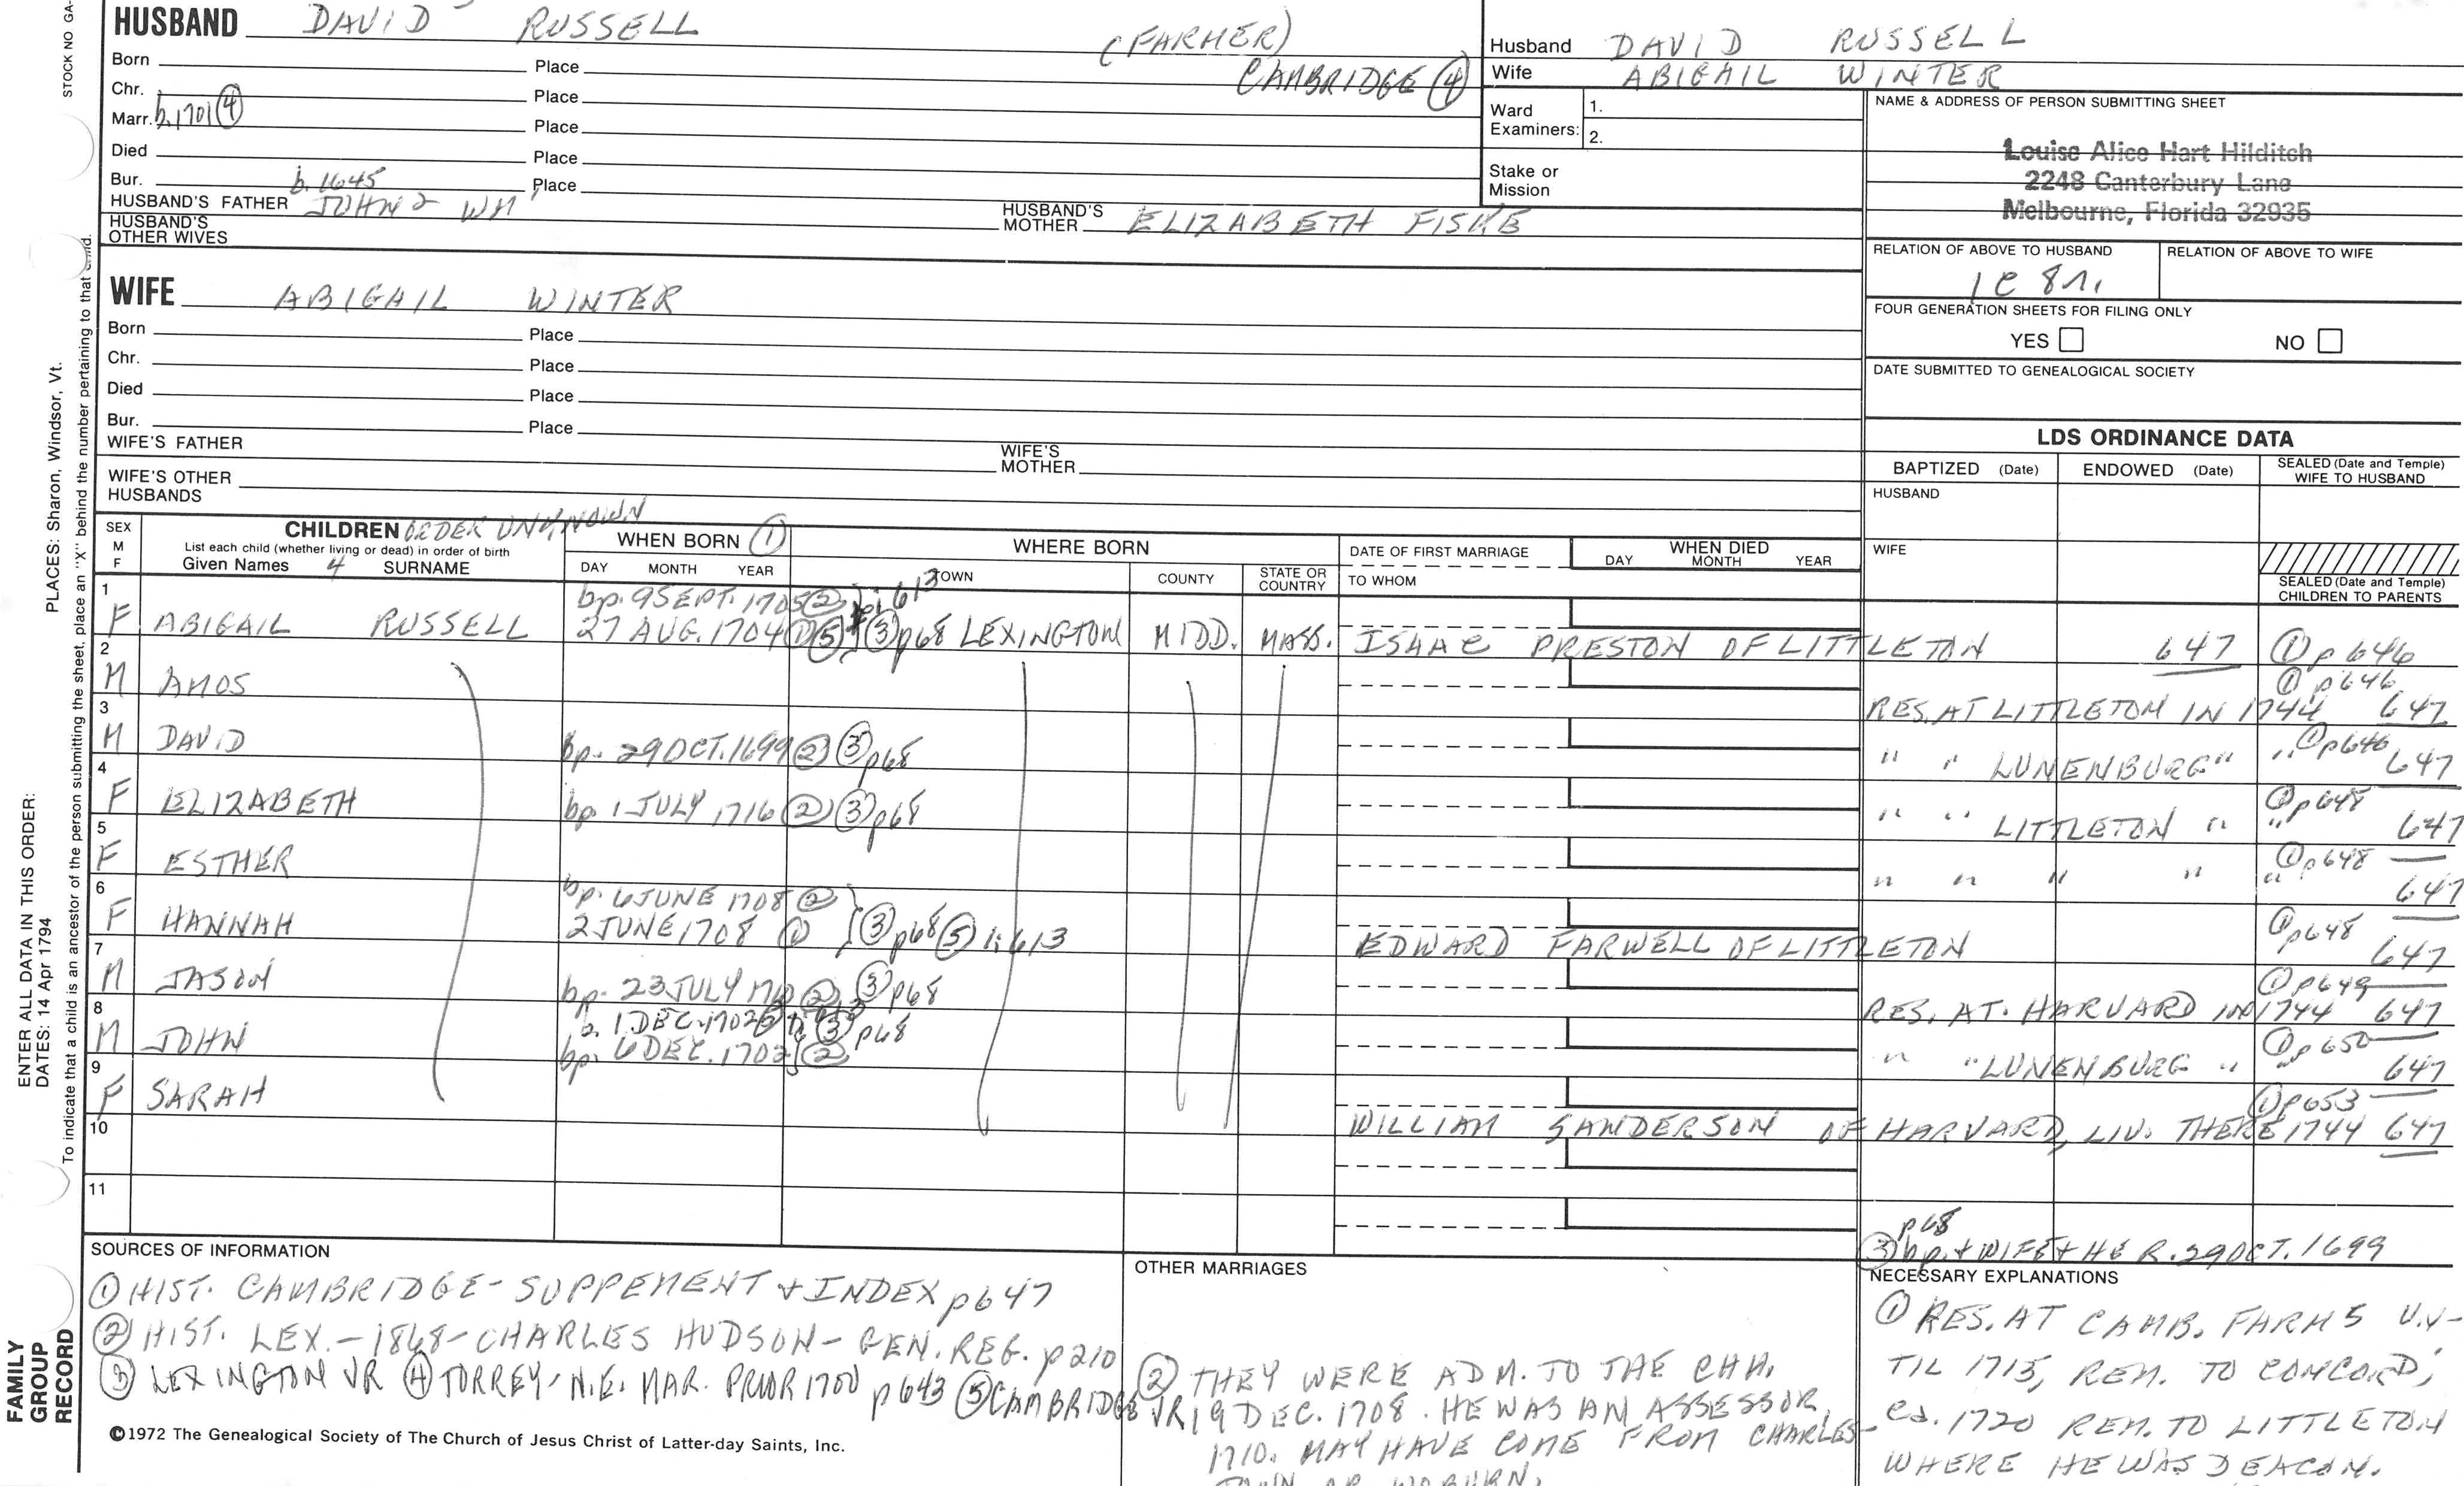 STOCK NO GA-
PLACES: Sharon, Windsor, Vt.
ENTER ALL DATA IN THIS ORDER:
DATES: 14 Apr 1794
To indicate that a child is an ancestor of the person submitting the sheet, place an "X" behind the number pertaining to that child.
FAMILY
GROUP
RECORD
HUSBAND DAVID RUSSELL (FARMER)
CAMBRIDGE ④
Born Place
Chr. Place
Marr. b. 1701 ④ Place
Died Place
Bur. Place
b. 1645
HUSBAND'S FATHER JOHN 2 WM 1
HUSBAND'S MOTHER ELIZABETH FISKE
HUSBAND'S OTHER WIVES
WIFE ABIGAIL WINTER
Born Place
Chr. Place
Died Place
Bur. Place
WIFE'S FATHER
WIFE'S MOTHER
WIFE'S OTHER HUSBANDS
Husband DAVID RUSSELL
Wife ABIGAIL WINTER
Ward Examiners: 1.
2.
Stake or Mission
NAME & ADDRESS OF PERSON SUBMITTING SHEET
Louise Alice Hart Hilditch
2248 Canterbury Lane
Melbourne, Florida 32935
RELATION OF ABOVE TO HUSBAND RELATION OF ABOVE TO WIFE
1 C 8 r.
FOUR GENERATION SHEETS FOR FILING ONLY
YES NO
DATE SUBMITTED TO GENEALOGICAL SOCIETY
LDS ORDINANCE DATA
BAPTIZED (Date) ENDOWED (Date) SEALED (Date and Temple) WIFE TO HUSBAND
HUSBAND
WIFE
SEALED (Date and Temple) CHILDREN TO PARENTS
SEX M F
CHILDREN ORDER UNKNOWN
List each child (whether living or dead) in order of birth
Given Names 4 SURNAME
WHEN BORN ①
DAY MONTH YEAR
WHERE BORN
TOWN COUNTY STATE OR COUNTRY
DATE OF FIRST MARRIAGE
TO WHOM
WHEN DIED
DAY MONTH YEAR
1 bp. 9 SEPT. 1705 ② 613
F ABIGAIL RUSSELL 27 AUG. 1704 ① ⑤ ③ p68 LEXINGTON MIDD. MASS. ISAAC PRESTON OF LITTLETON 647 ① p646
2 ① p646
M AMOS RES. AT LITTLETON IN 1744 647
3 ① p646
M DAVID bp. 29 OCT. 1699 ② ③ p68 " " LUNENBURG " " 647
4 ① p648
F ELIZABETH bp. 1 JULY 1716 ② ③ p68 " " LITTLETON " " 647
5 ① p648
F ESTHER " " " " " 647
6 bp. 6 JUNE 1708 ② ① p648
F HANNAH 2 JUNE 1708 ① ③ p68 ⑤ 1:613 EDWARD FARWELL OF LITTLETON 647
7 ① p649
M JASON bp. 23 JULY ② ③ p68 RES. AT. HARVARD IN 1744 647
8 b. 1 DEC. 1702 ③ p68 ① p650
M JOHN bp. 6 DEC. 1702 ② " " LUNENBURG " " 647
9 ① p653
F SARAH WILLIAM SANDERSON OF HARVARD, LIV. THERE 1744 647
10
11
p68
③ bp. + WIFE + HE R. 29 OCT. 1699
SOURCES OF INFORMATION
① HIST. CAMBRIDGE - SUPPEMENT + INDEX p647
② HIST. LEX. - 1868 - CHARLES HUDSON - GEN. REG. p210
③ LEXINGTON VR ④ TORREY - N.E. MAR. PRIOR 1700 p643 ⑤ CAMBRIDGE VR
©1972 The Genealogical Society of The Church of Jesus Christ of Latter-day Saints, Inc.
OTHER MARRIAGES
② THEY WERE ADM. TO THE CHH.
19 DEC. 1708. HE WAS AN ASSESSOR,
1710. MAY HAVE COME FROM CHARLES-
TOWN OR WOBURN.
NECESSARY EXPLANATIONS
① RES. AT CAMB. FARMS UN-
TIL 1715, REM. TO CONCORD,
ca. 1720 REM. TO LITTLETON
WHERE HE WAS DEACON.